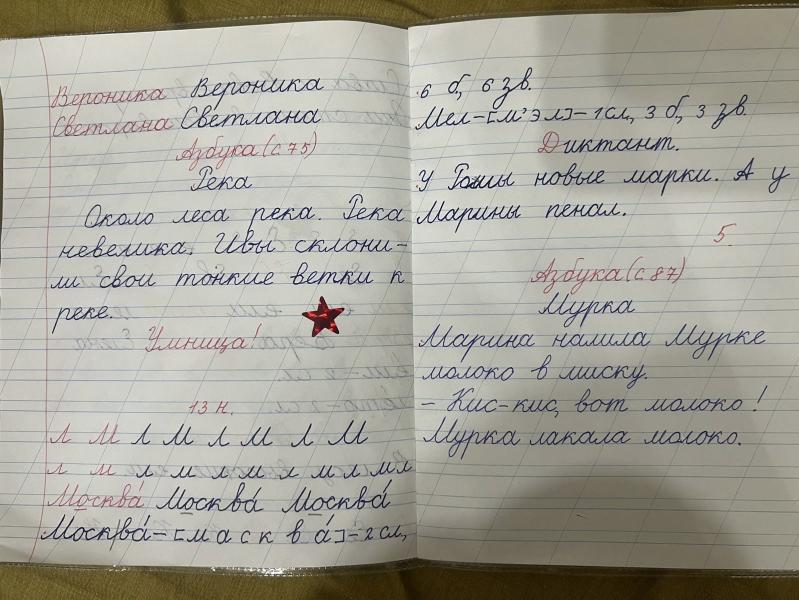 Вероника Вероника
Светлана Светлана
Азбука (с 75)
Река
Около леса река. Река
невелика. Ивы склони-
ли свои тонкие ветки к
реке.
Умница!
13 н.
Л М Л М Л М Л М
л м л м л м л м л м л
Москва́ Москва́ Москва́
Моск|ва́ – [м а с к в а́] – 2 сл,
6 б, 6 зв.
Мел – [м' э л] – 1 сл, 3 б, 3 зв.
Диктант.
У Гоши новые марки. А у
Марины пенал.
5.
Азбука (с 87)
Мурка
Марина налила Мурке
молоко в миску.
– Кис-кис, вот молоко!
Мурка лакала молоко.